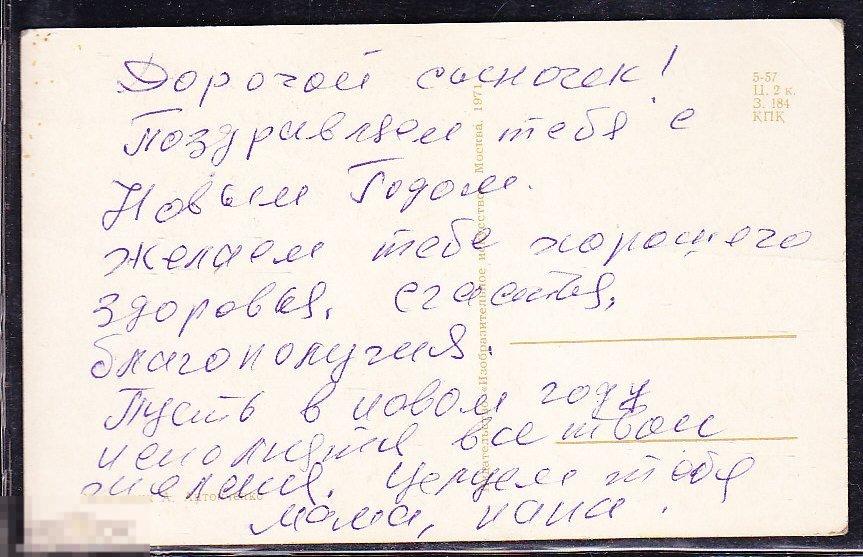 Дорогой сыночек!
Поздравляем тебя с
Новым Годом.
Желаем тебе хорошего
здоровья, счастья,
благополучия.
Пусть в новом году
исполнятся все твои
желания. Целуем тебя
мама, папа.
5-57
Ц. 2 к.
З. 184
КПК
«Изобразительное искусство». Москва. 1971